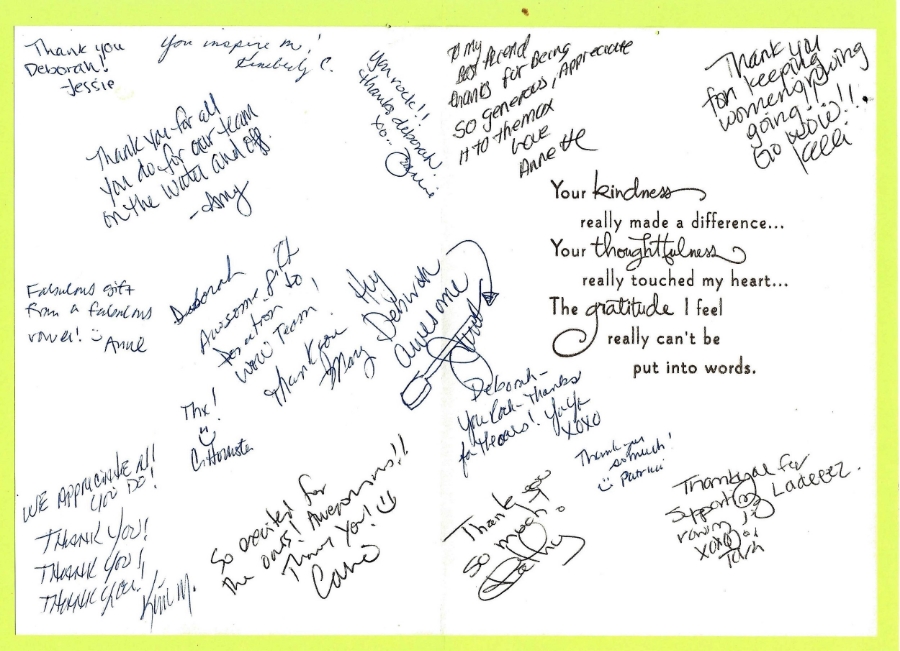 Thank you
Deborah!
-Jessie
You inspire me!
Kimberly C.
You rock!!
thanks deborah.
xo...
To my
Best friend
thanks for being
so generous, Appreciate
it to the max
Love
Annette
Thank you
for keeping
women rowing
going!!...
Go WOW!!!
Kelli
Thank you for all
you do for our team
on the water and off.
-Amy
Your kindness
really made a difference...
Your thoughtfulness
really touched my heart...
The gratitude I feel
really can't be
put into words.
Fabulous gift
from a fabulous
rower! ☺
Anne
Deborah
Awesome gift
Donation to
WOW Team!
Thank you
Mary
Hey
Deborah
awesome
Thx!
☺
Deborah-
You Rock-Thanks
for the oars! YaYa
XOXO
Thank you
so much!
☺ Patrici
WE APPRECIATE All
YOU DO!
THANK YOU!
THANK YOU!
THANK YOU!
Kim M.
So excited for
the oars! Awesomeness!!
Thank You! ☺
Thank you
so much!
Kathy
Thank you for
supporting Ladeeez
rowing
XOXO
Tara